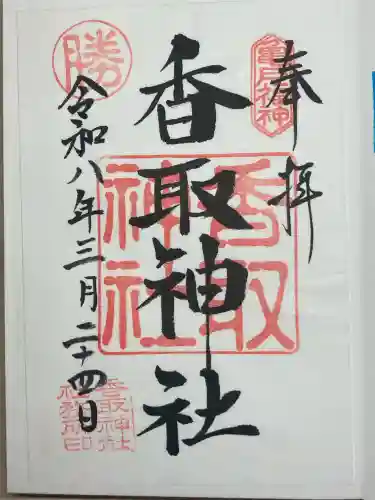 奉拝
亀戸香取神
香取神社
香取神社
勝
令和八年三月二十四日
香取神社
社務所印